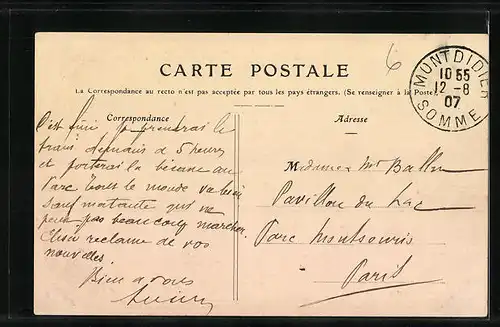 CARTE POSTALE
La Correspondance au recto n'est pas acceptée par tous les pays étrangers. (Se renseigner à la Poste)
6
MONTDIDIER
10 55
12 - 8
07
SOMME
Correspondance
C'est fini je prendrai le
train demain à 5 heures
et porterai la bécane au
Parc Tout le monde va bien
sauf ma tante qui ne
peut pas beaucoup marcher
réclame de vos
nouvelles.
Bien à vous
Adresse
Madame
Pavillon du Lac
Parc Montsouris
Paris